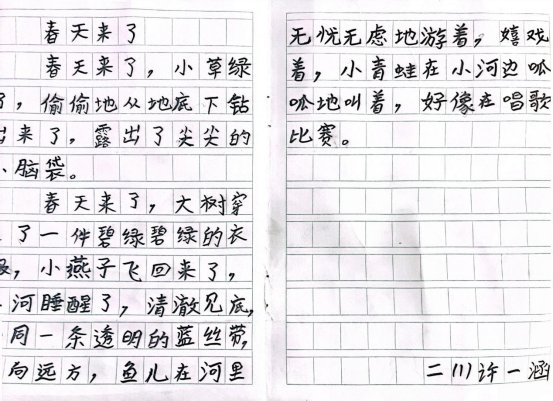 春天来了
春天来了，小草绿
了，偷偷地从地底下钻
出来了，露出了尖尖的
脑袋。
春天来了，大树穿
了一件碧绿碧绿的衣
服，小燕子飞回来了，
河睡醒了，清澈见底，
同一条透明的蓝丝带，
向远方，鱼儿在河里
无忧无虑地游着，嬉戏
着，小青蛙在小河边呱
呱地叫着，好像在唱歌
比赛。
二川许一涵